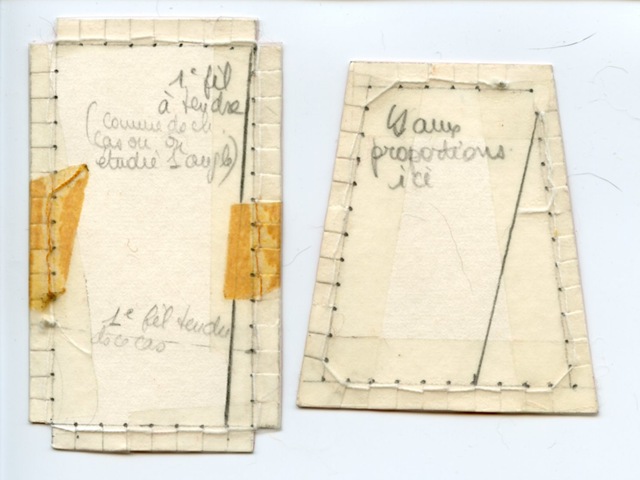 1e fil
à tendre
(comme ds ch
cas où on
étudie 1 angle)
1e fil tendu
ds ce cas
aux
proportions
ici